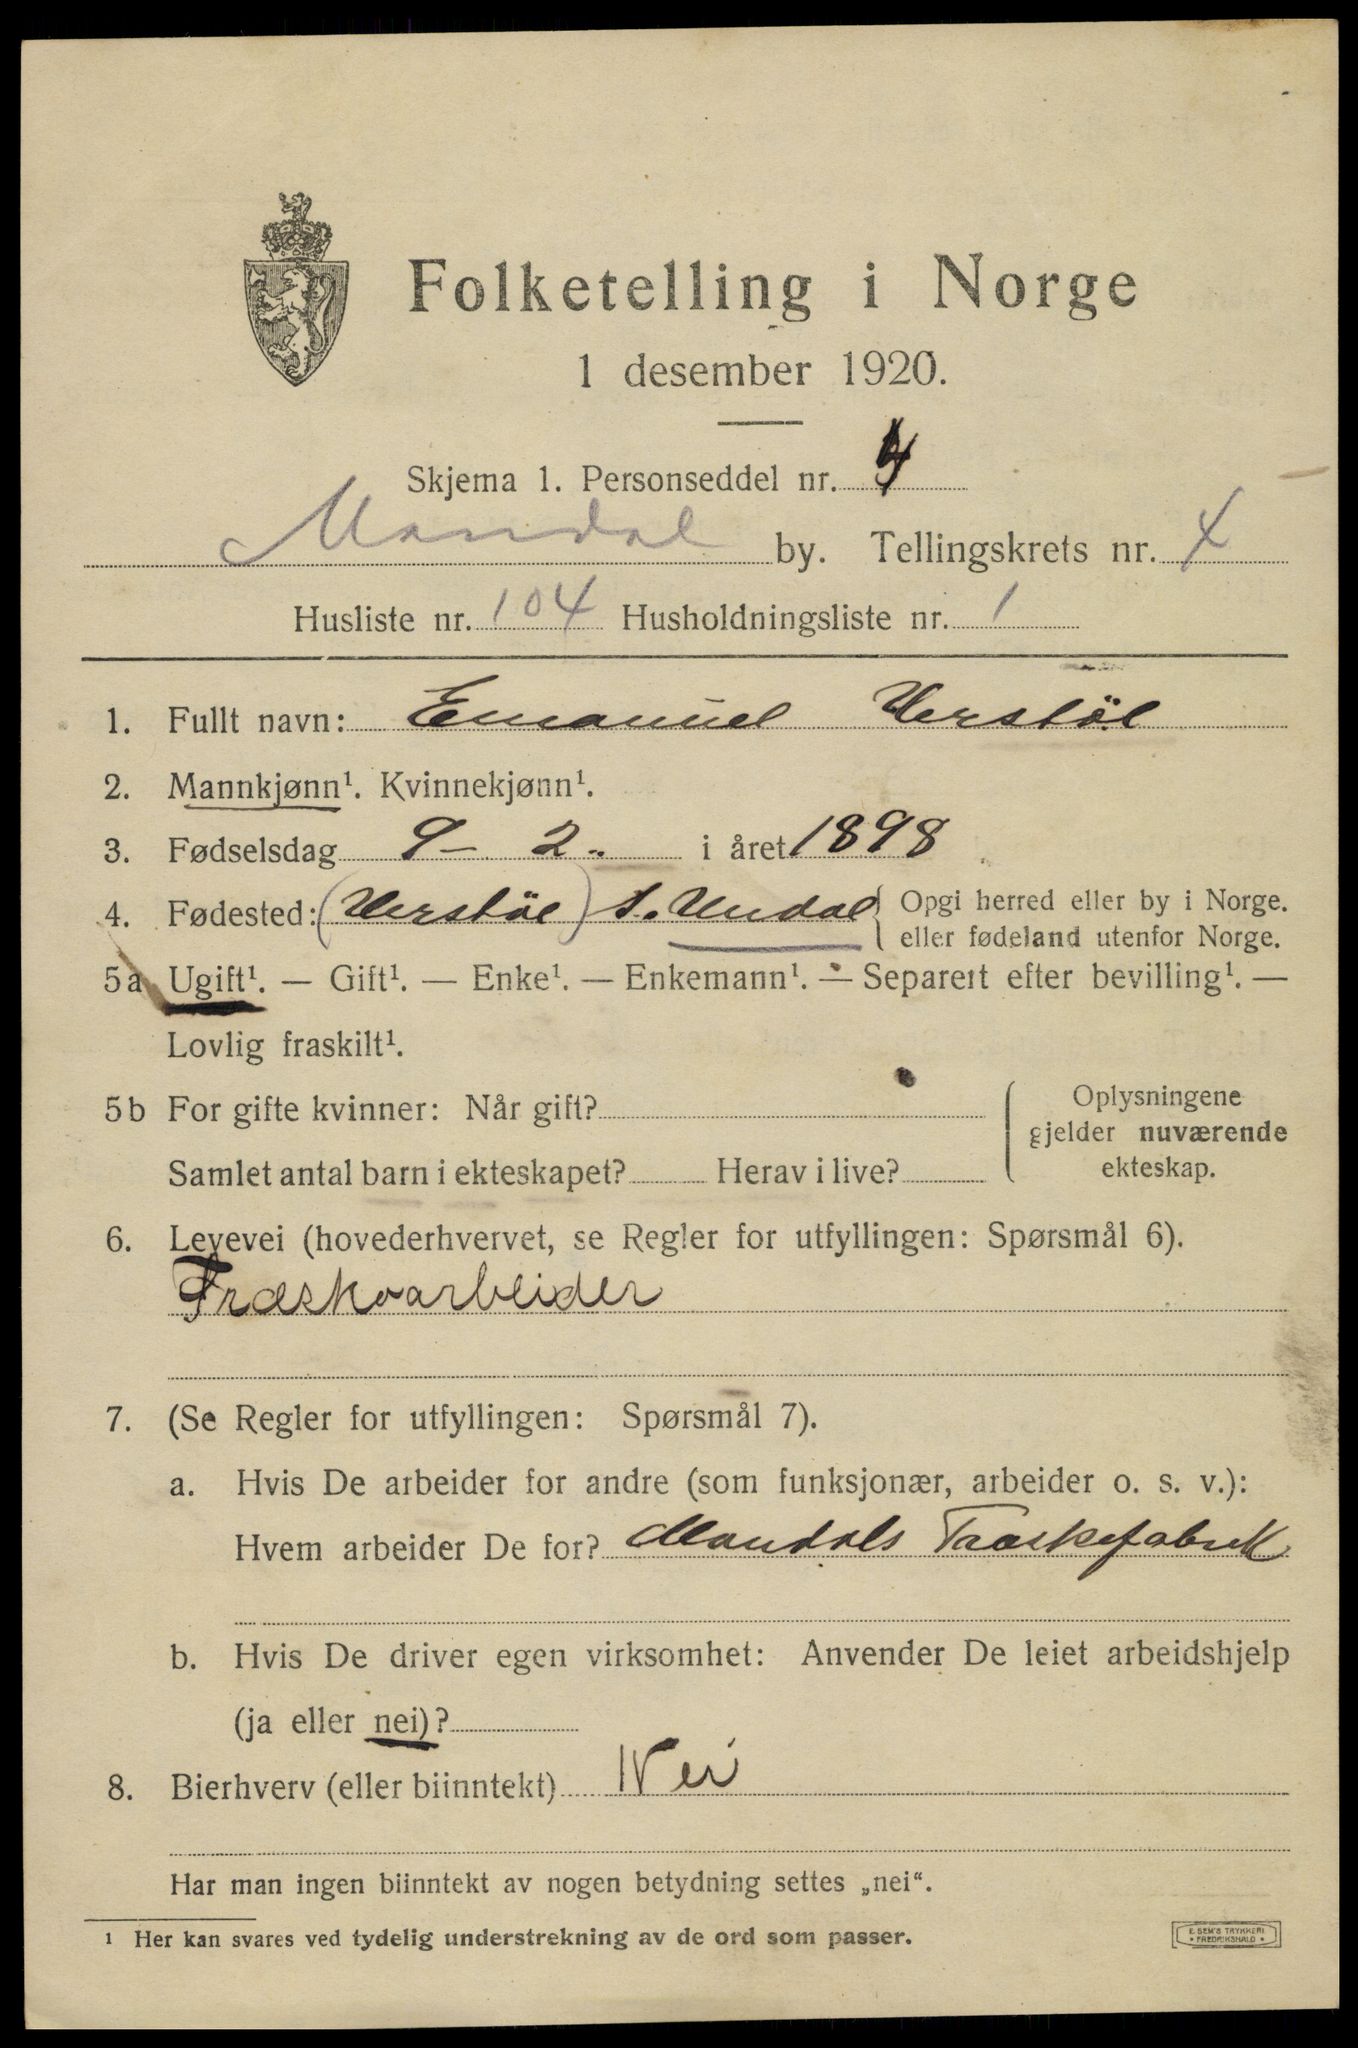 Folketelling i Norge
1 desember 1920.
Skjema 1. Personseddel nr. 4
Mandal by. Tellingskrets nr. 4
Husliste nr. 104 Husholdningsliste nr. 1
1. Fullt navn: Emanuel Verstöl
2. Mannkjønn¹. Kvinnekjønn¹.
3. Fødselsdag 9 - 2. i året 1898
4. Fødested: (Verstöl) S. Undal { Opgi herred eller by i Norge.
eller fødeland utenfor Norge.
5a Ugift¹. — Gift¹. — Enke¹. — Enkemann¹. — Separert efter bevilling¹. —
Lovlig fraskilt¹.
5b For gifte kvinner: Når gift?
Samlet antal barn i ekteskapet? Herav i live?
Oplysningene
gjelder nuværende
ekteskap.
6. Levevei (hovederhvervet, se Regler for utfyllingen: Spørsmål 6).
Træskoarbeider
7. (Se Regler for utfyllingen: Spørsmål 7).
a. Hvis De arbeider for andre (som funksjonær, arbeider o. s. v.):
Hvem arbeider De for? Mandals Træskofabrik
b. Hvis De driver egen virksomhet: Anvender De leiet arbeidshjelp
(ja eller nei)?
8. Bierhverv (eller biinntekt) Nei
Har man ingen biinntekt av nogen betydning settes „nei“.
¹ Her kan svares ved tydelig understrekning av de ord som passer.
E. SEM'S TRYKKERI
* FREDRIKSHALD *